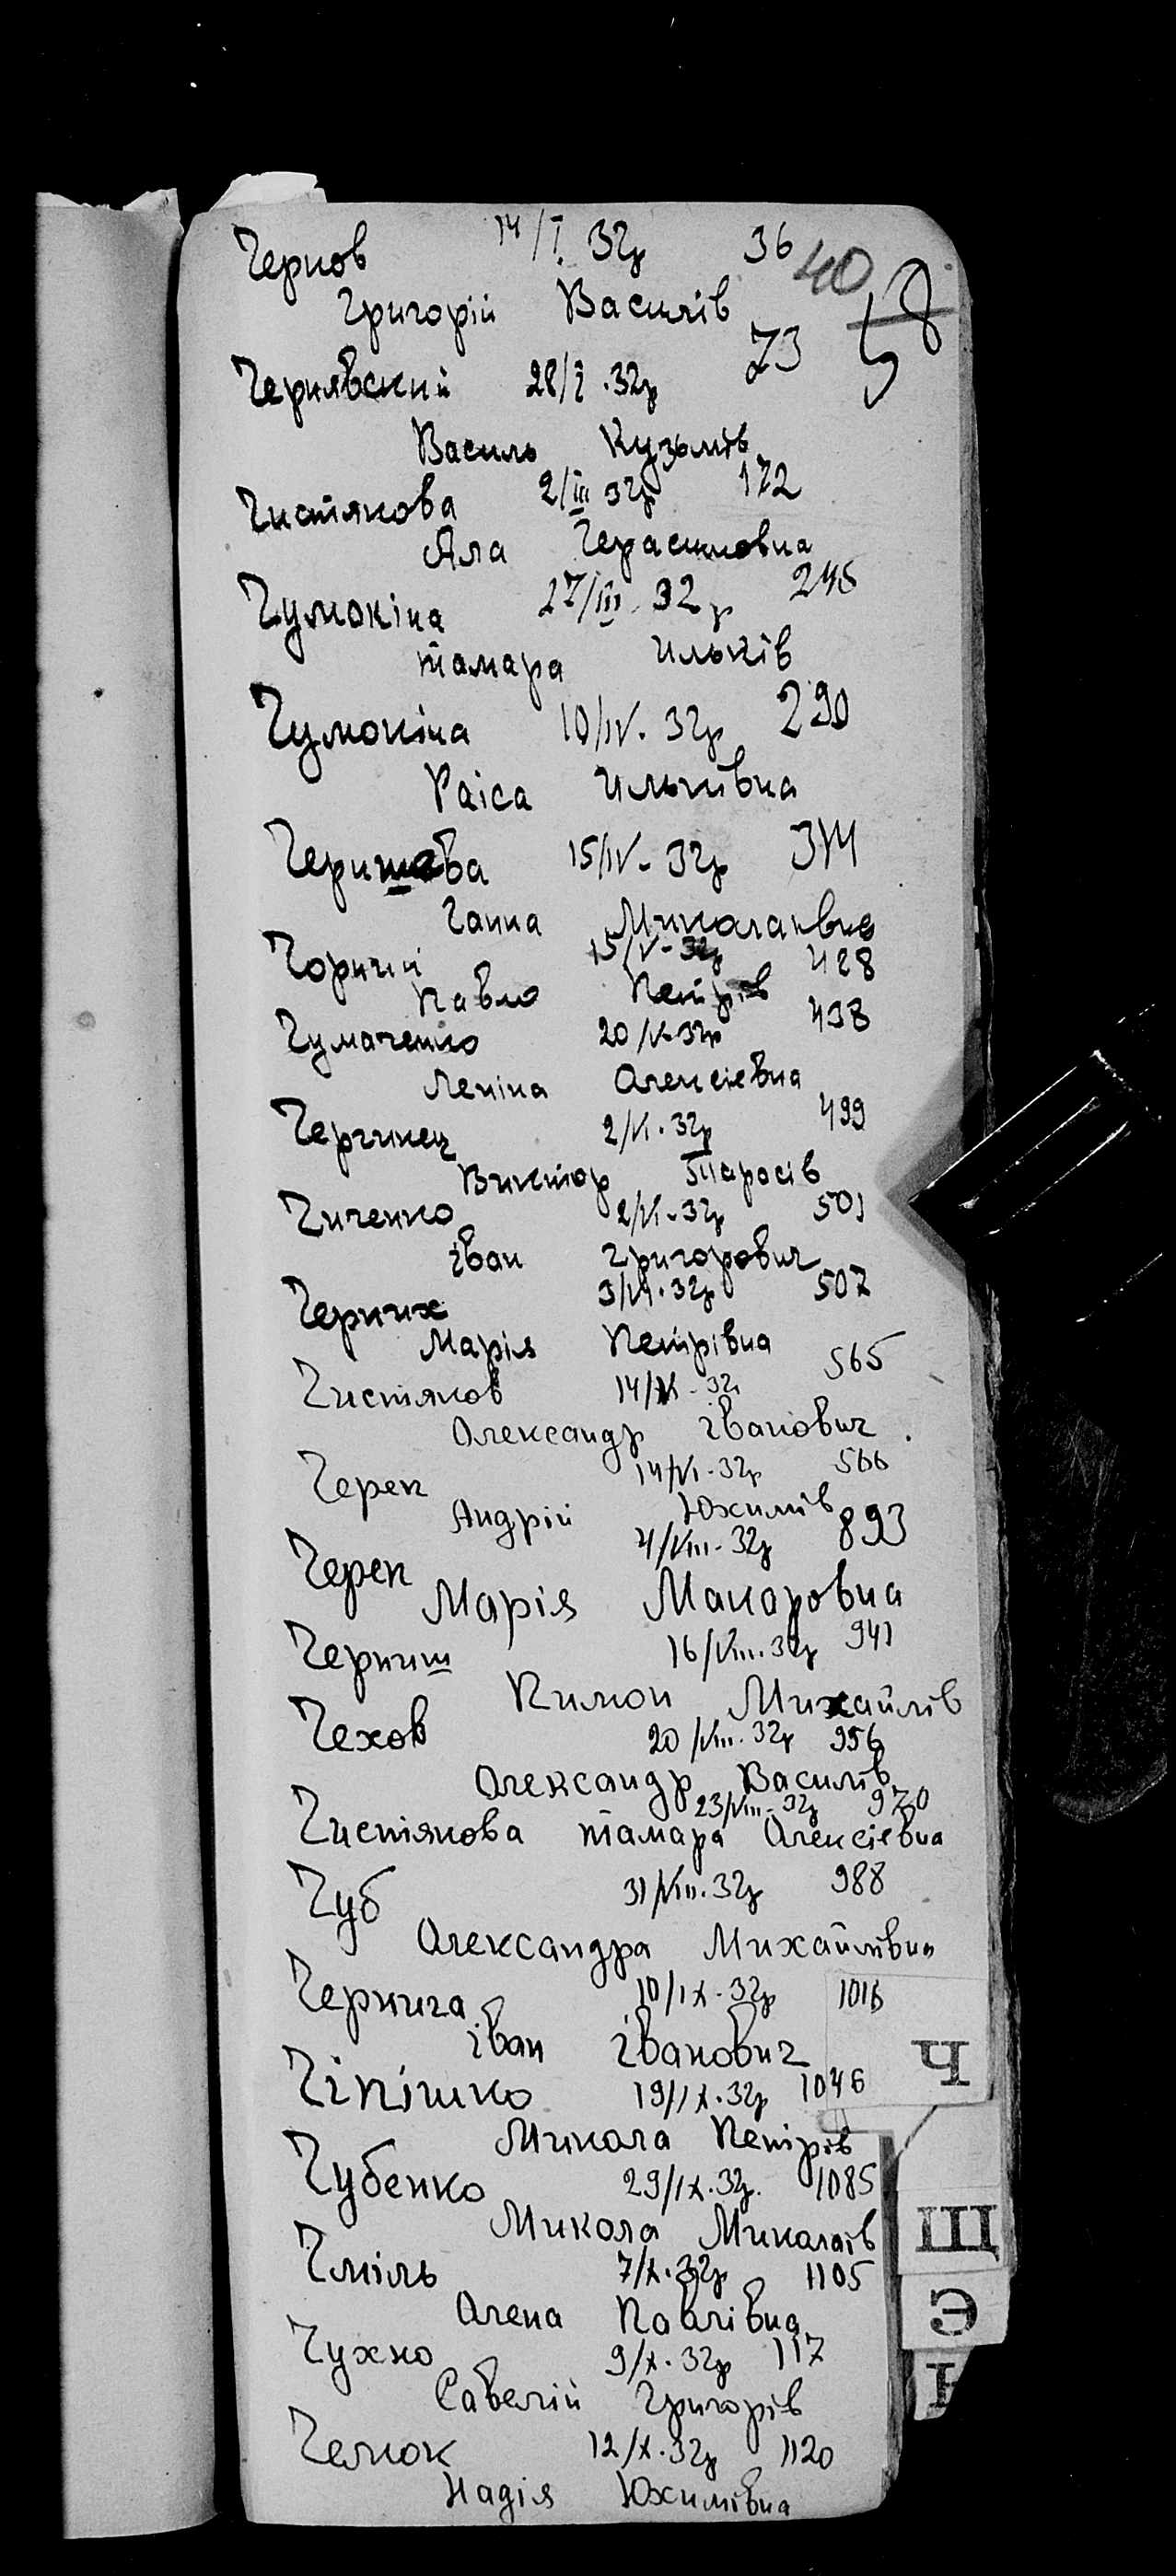 Чернов 14/I. 32р 36
40
58
Григорій Василів
Чернявский 28/I.32р 73
Василь Кузьмів
Чистякова 2/III 32р 172
Яла Герасимовна
Чумокіна 27/III.32р 245
тамара ильків
Чумокіна 10/IV.32р 290
Раіса ильківна
Чернишева 15/IV-32р 314
Ганна Миколаивна
Чорний 15/V-32р 428
Павло Петрів
Чумаченко 20/V-32р 438
Леніна Олексіевна
Чернинец 2/VI.32р 499
Виктор Тарасів
Чиченко 2/VI-32р 501
іван григорович
Черних 3/VI.32р 507
Марія Петрівна
Чистяков 14/VI-32р 565
Олександр іванович
Черек 14/VI-32р 566
Андрій Юхимів
Черек 4/VIII-32р 893
Марія Макаровна
Черниш 16/VIII.32р 941
Килион Михайлів
Чехов 20/VIII.32р 956
Олександр Василів
23/VIII-32р 970
Чистякова тамара Олексіевна
Чуб 31/VIII.32р 988
Олександра Михайлівна
Чернига 10/IX-32р 1016
іван іванович
Чіпішко 19/IX.32р 1046
Микола Петрів
Чубенко 29/IX.32р. 1085
Микола Миколаів
Чміль 7/X.32р 1105
Олена Павлівна
Чухно 9/X.32р 117
Савелій Григорів
Челюк 12/X.32р 1120
Надія Юхимівна
Ч
Щ
Э